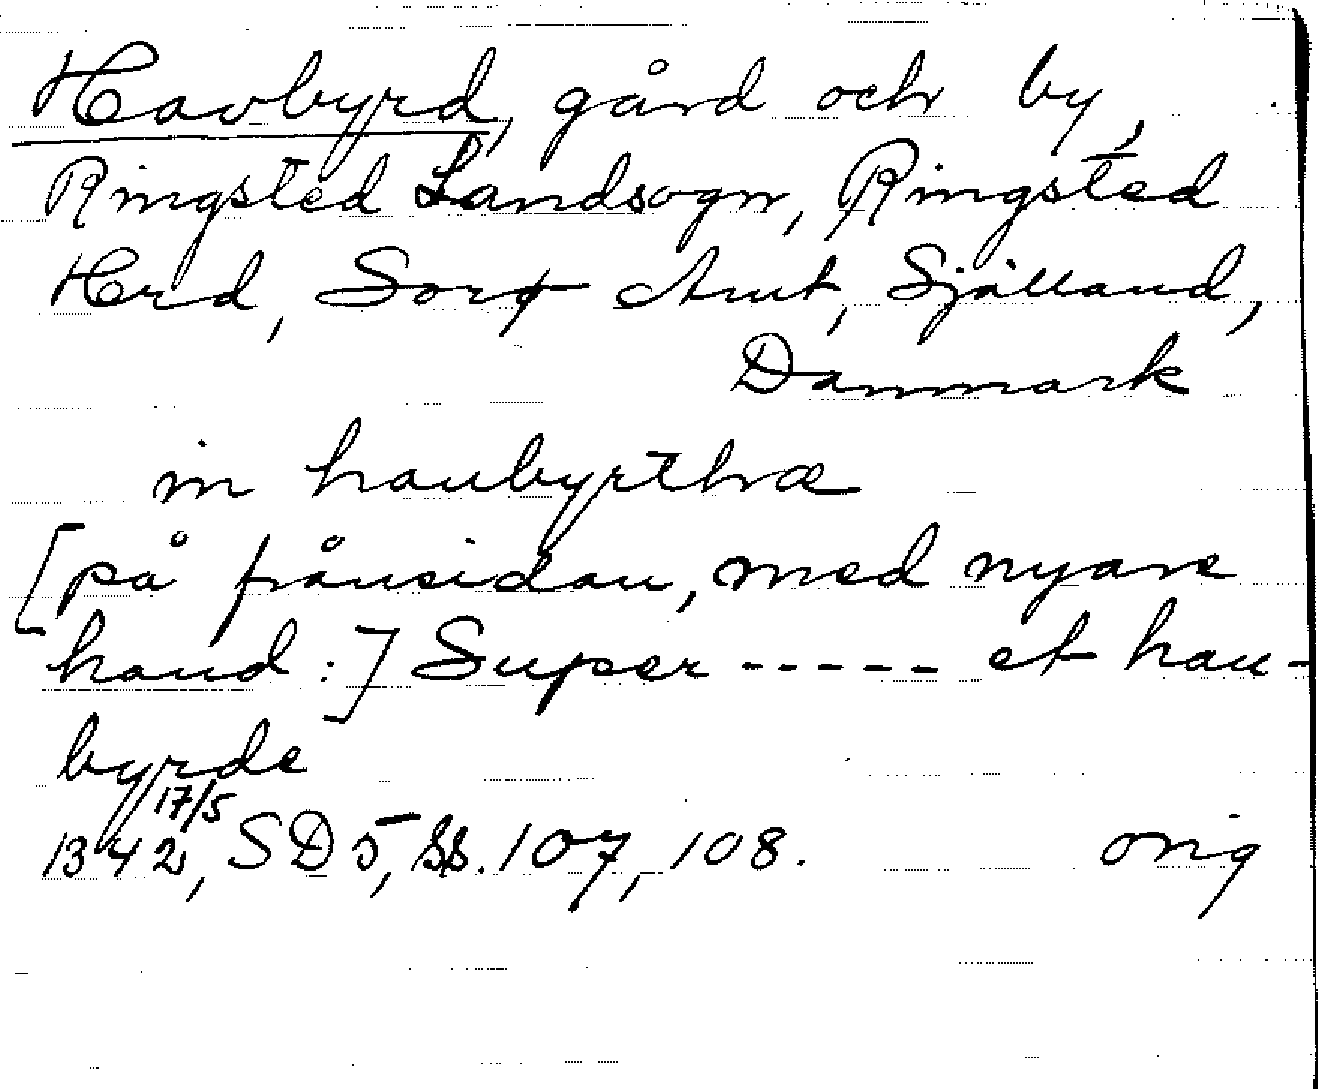 Havbyrd, gård och by,
Ringsted Landsogn, Ringsted
Hrd, Sorø Amt, Själland,
Danmark
in haubyrthæ
[på frånsidan, med nyare
hand:] Super ----- et hau-
byrde
1342 17/5, SD 5, ss. 107, 108. orig